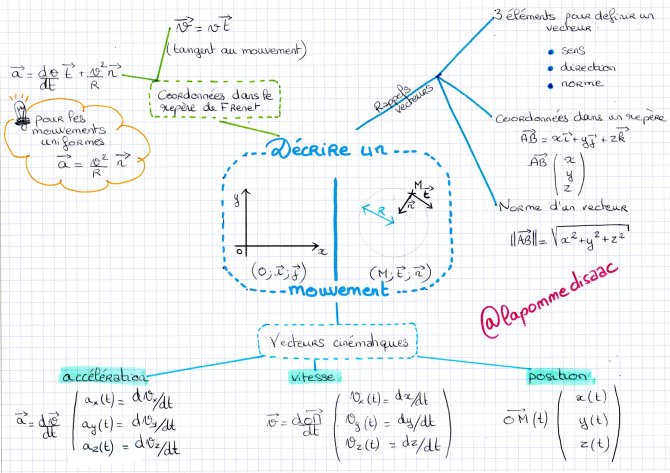 v⃗ = v t⃗
(tangent au mouvement)
a⃗ = dv/dt t⃗ + v²/R n⃗
Coordonnées dans le
repère de Frenet.
pour les
mouvements
uniformes
a⃗ = v²/R n⃗
Rappels
vecteurs
3 éléments pour définir un
vecteur:
• sens
• direction
• norme
Coordonnées dans un repère
AB⃗ = xi⃗ + yj⃗ + zk⃗
AB⃗ (x
y
z)
Norme d'un vecteur
||AB⃗|| = √x²+y²+z²
Décrire un
y
O
x
(O; i⃗; j⃗)
M
t⃗
n⃗
R
(M; t⃗; n⃗)
mouvement
@lapommedisaac
Vecteurs cinématiques
accélération
a⃗ = dv⃗/dt
ax(t) = dvx/dt
ay(t) = dvy/dt
az(t) = dvz/dt
vitesse
v⃗ = dOM⃗/dt
vx(t) = dx/dt
vy(t) = dy/dt
vz(t) = dz/dt
position
OM⃗(t)
x(t)
y(t)
z(t)